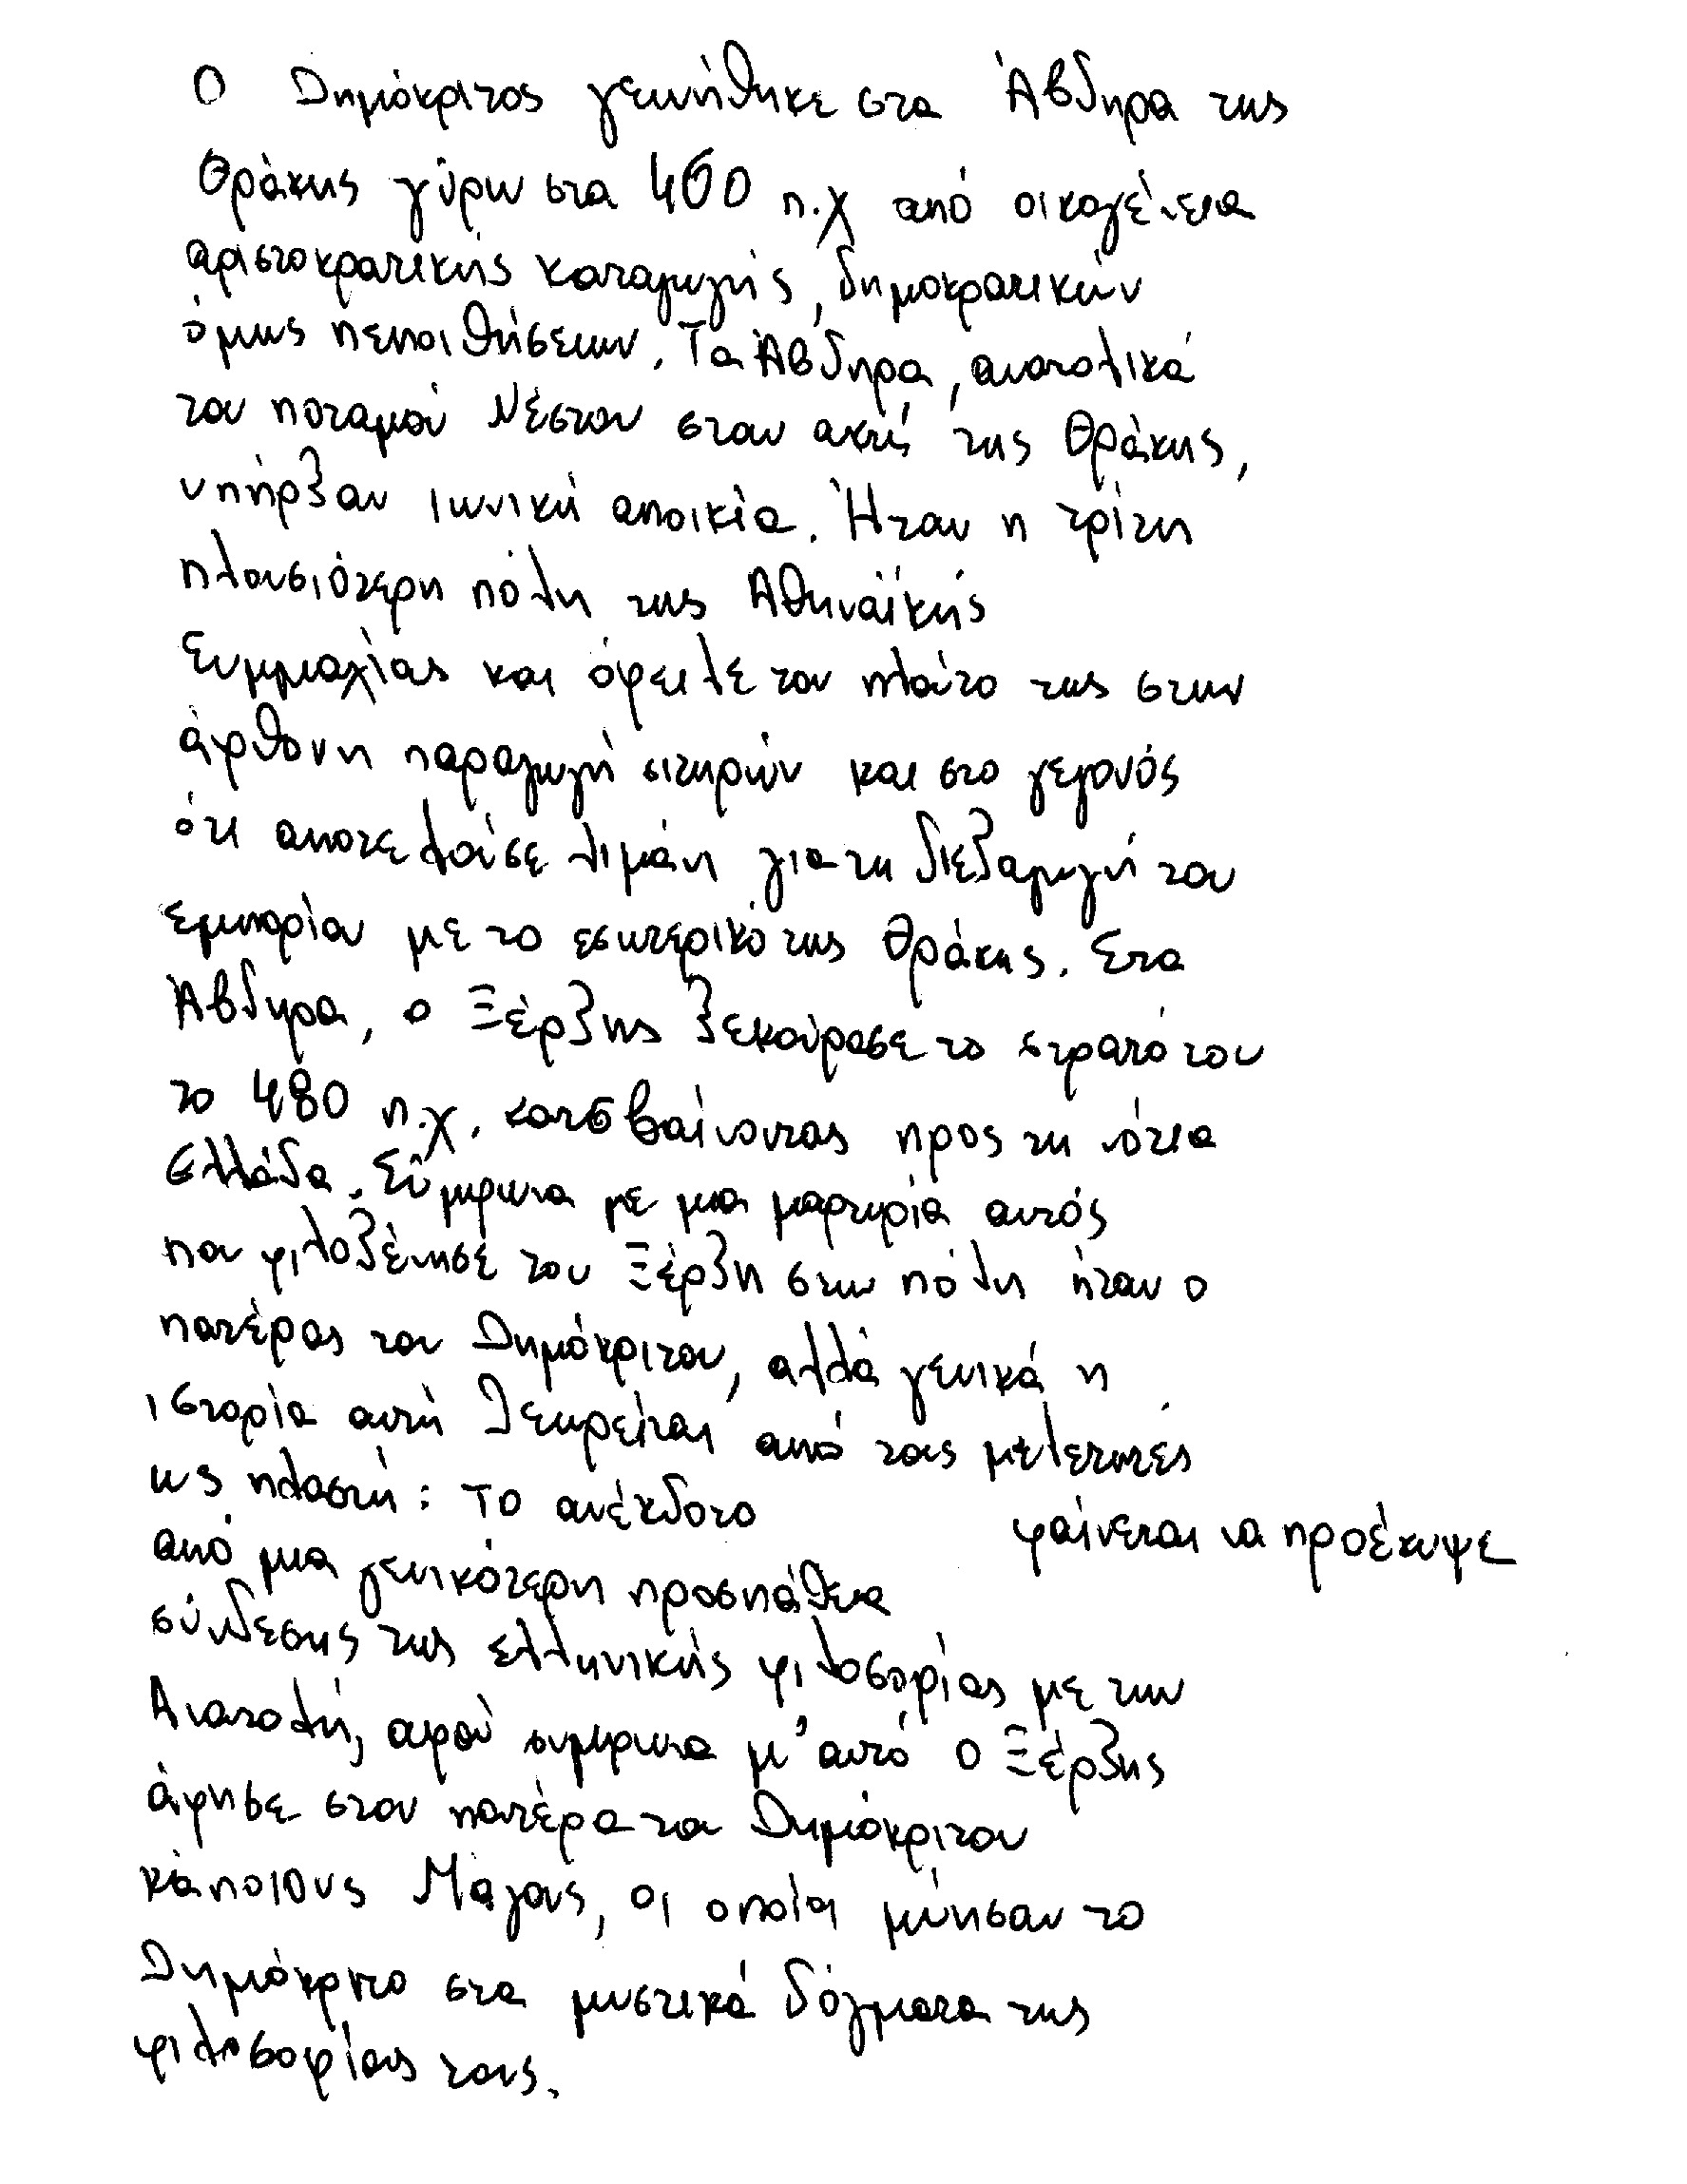 Ο Δημόκριτος γεννήθηκε στα Άβδηρα της
Θράκης γύρω στα 460 π.χ από οικογένεια
αριστοκρατικής καταγωγής, δημοκρατικών
όμως πεποιθήσεων. Τα Άβδηρα, ανατολικά
του ποταμού Νέστου στον ακτή της Θράκης,
υπήρξαν ιωνική αποικία. Ήταν η τρίτη
πλουσιότερη πόλη της Αθηναϊκής
Συμμαχίας και όφειλε τον πλούτο της στην
άφθονη παραγωγή σιτηρών και στο γεγονός
ότι αποτελούσε λιμάνι για τη διεξαγωγή του
εμπορίου με το εσωτερικό της Θράκης. Στα
Άβδηρα, ο Ξέρξης ξεκούρασε το στρατό του
το 480 π.χ. κατεβαίνοντας προς τη νότια
Ελλάδα. Σύμφωνα με μια μαρτυρία αυτός
που φιλοξένησε τον Ξέρξη στην πόλη ήταν ο
πατέρας του Δημόκριτου, αλλά γενικά η
ιστορία αυτή θεωρείται από τους μελετητές
ως πλαστή: το ανέκδοτο φαίνεται να προέκυψε
από μια γενικότερη προσπάθεια
σύνδεσης της ελληνικής φιλοσοφίας με την
Ανατολή, αφού σύμφωνα μ' αυτό ο Ξέρξης
άφησε στον πατέρα του Δημόκριτου
κάποιους Μάγους, οι οποίοι μύησαν το
Δημόκριτο στα μυστικά δόγματα της
φιλοσοφίας τους.